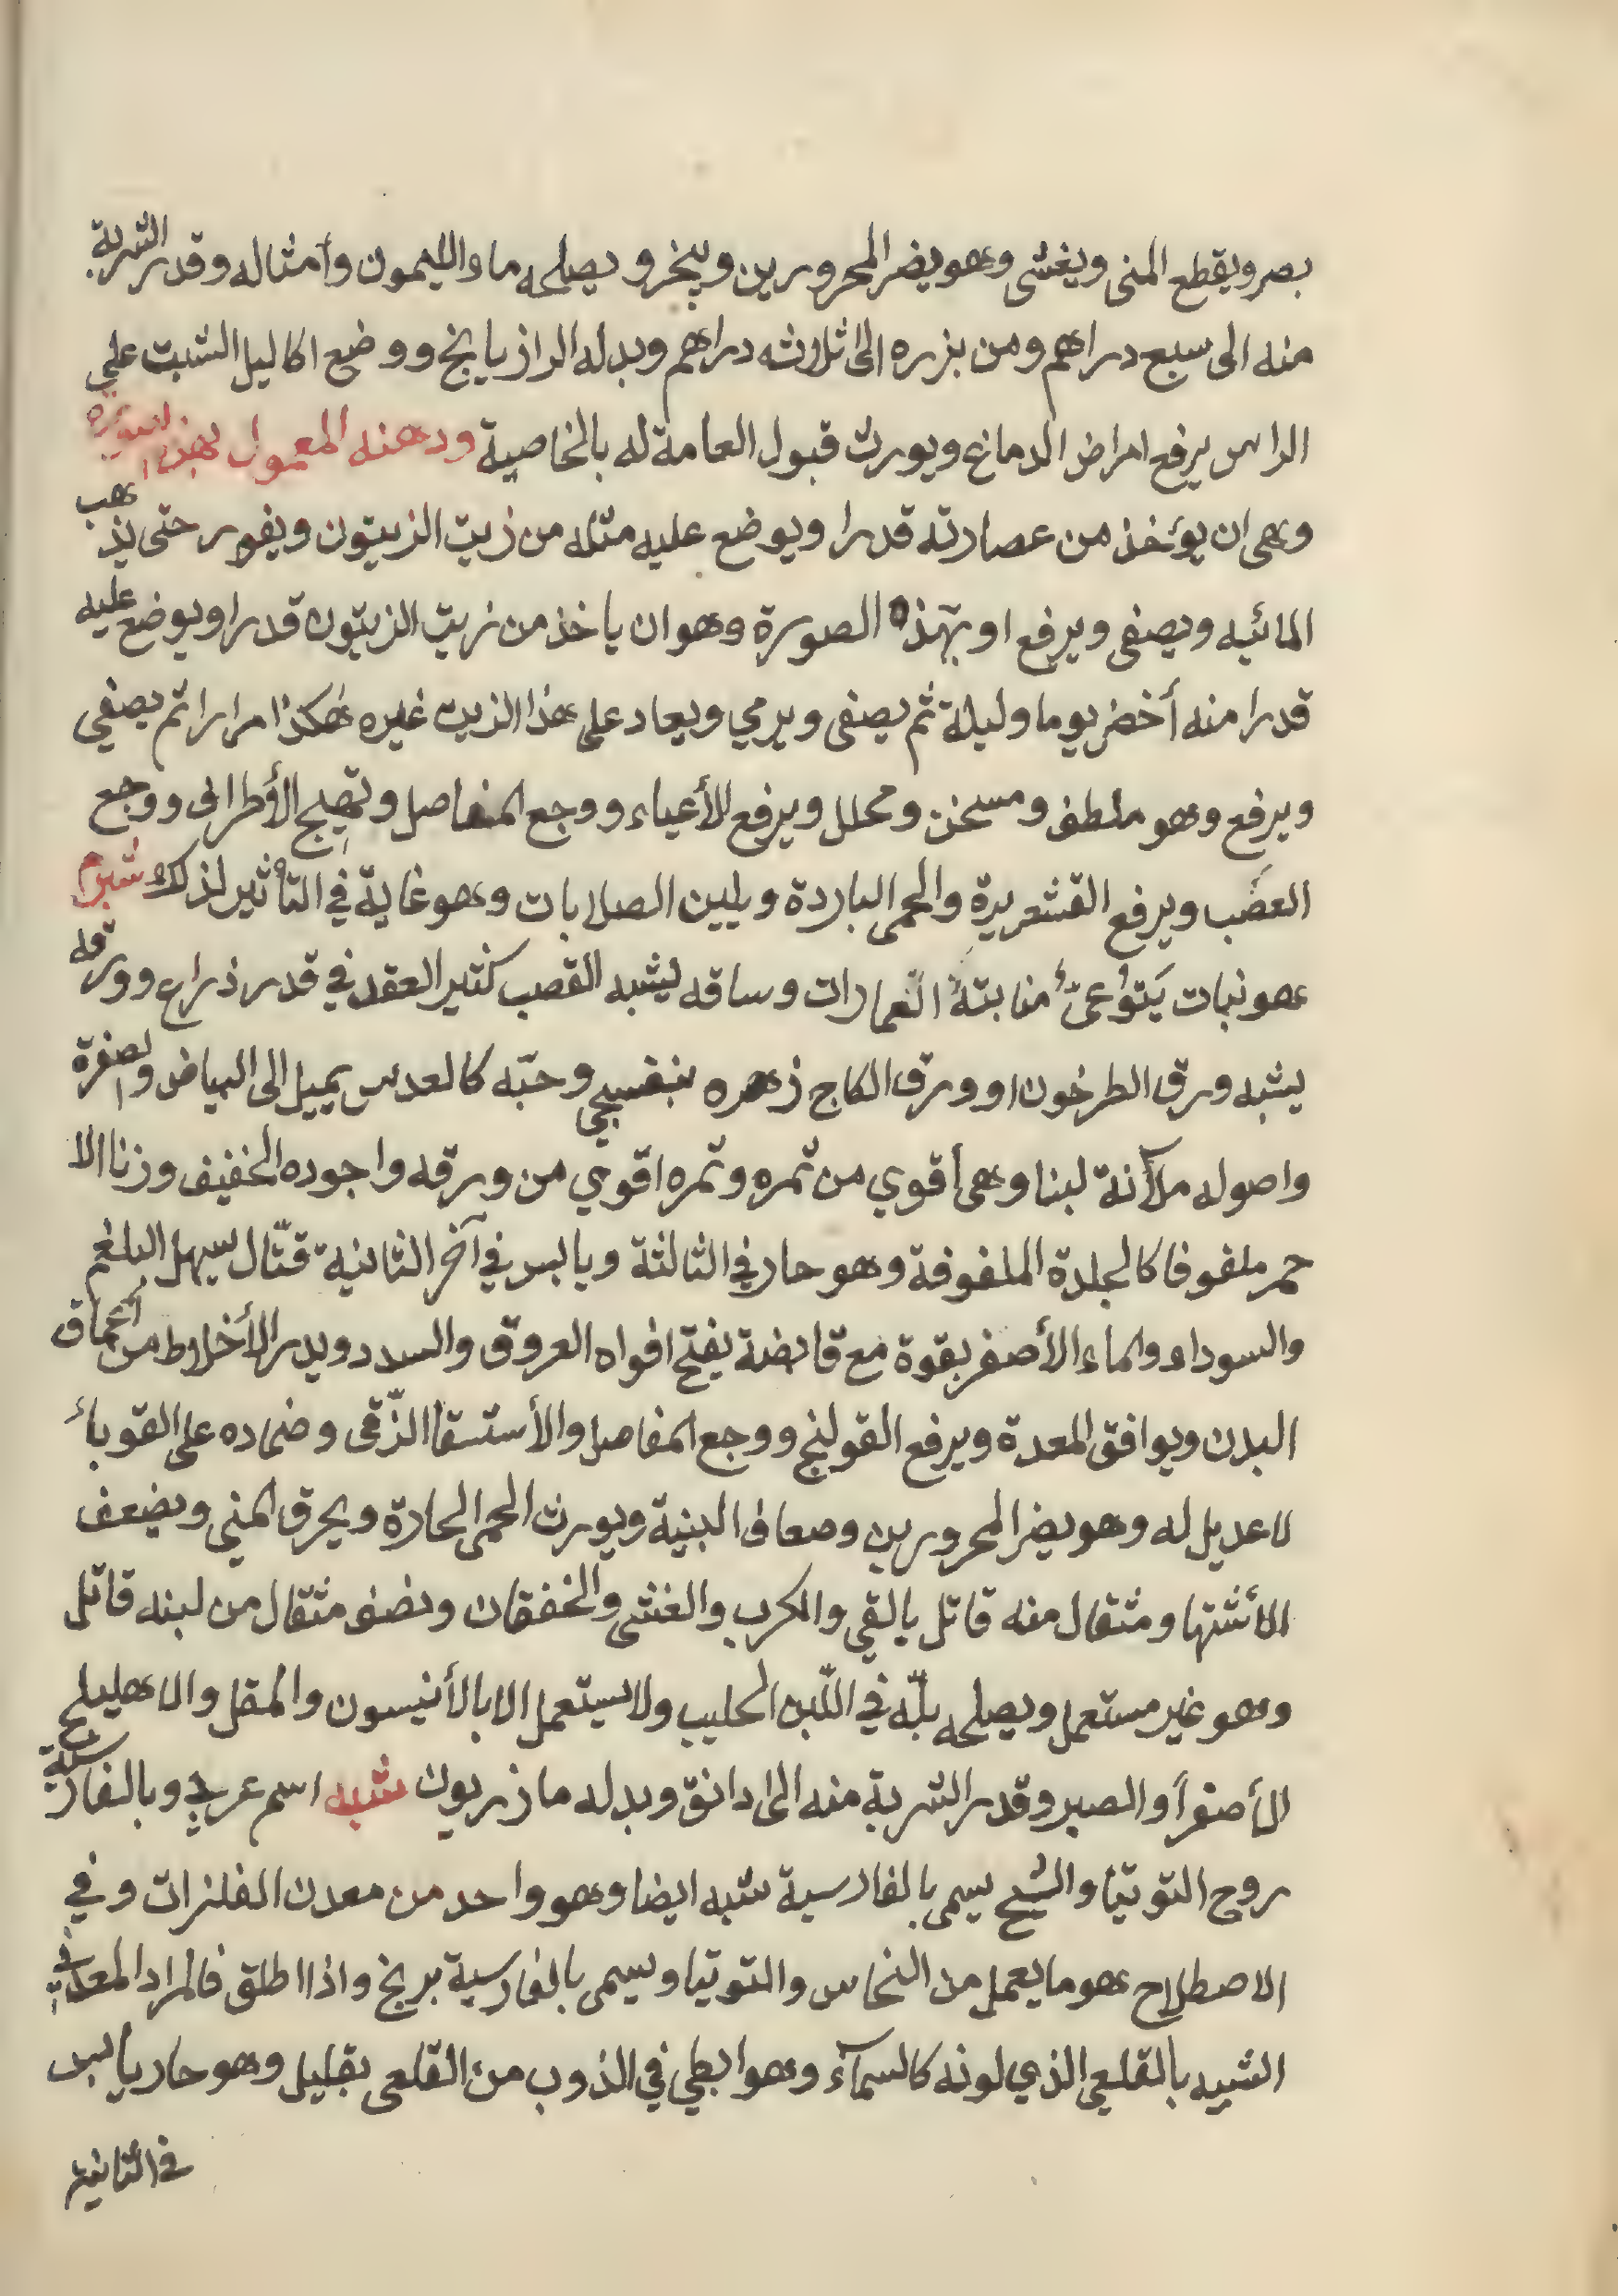 بصر ويقطع المنى ويغشى وهو يضر المحرورين ويبخر ويصلحه ماء الليمون وأمثاله وقدر الشربة
منه الى سبع دراهم ومن بزره الى ثلاثه دراهم وبدله الرازيايخ ووضع اكاليل الشبت علي
الراس يرفع امراض الدماغ ويورث قبول العامة له بالخاصية ودهنه المعمول بهذه الصورة
وهى ان يؤخذ من عصارته قدرا ويوضع عليه مثله من زيت الزيتون ويفور حتى يذهب
المائيه ويصفى ويرفع او بهذه الصورة وهو ان ياخذ من زيت الزيتون قدرا ويوضع عليه
قدرا منه أخضر يوما وليلة ثم يصفى ويرمي ويعاد على هذا الزيت غيره هكذا مرارا ثم يصفي
ويرفع وهو ملطف ومسخن ومحلل ويرفع للأعياء ووجع المفاصل وتهيج الأطراف ووجع
العضب ويرفع القشعريرة والحمى الباردة ويلين الصلابات وهو غاية في التأثير لذلك شبرم
هو نبات يَتوُعىّ منابتهُ العمارات وساقه يشبه القصب كثير العقد في قدر ذراع وورقه
يشبه ورق الطرخون او ورق الكاج زهره بنفسجي وحبّه كالعدس يميل الى البياض والصفرة
واصوله ملآنة لبنا وهى أقوي من ثمره وثمره اقوي من ورقه واجوده الخفيف وزنا الا
حمر ملفوفا كالجلدة الملفوفة وهو حار في الثالثة ويابس في آخر الثانية قتّال يسهل البلغم
والسوداء والماء الأصفر بقوة مع قابضة يفتح افواه العروق والسدد ويدر الأخلاط من أعماق
البدن ويوافق المعدة ويرفع القولنج ووجع المفاصل والأستسقا الزّقى وضماده على القوبأ
لا عديل له وهو يضر المحرورين وضعاف البنية ويورث الحمى الحادة ويحرق المني ويضعف
الأشتها ومثقال منه قاتل بالقي والكرب والغشى والخفقان ونصف مثقال من لبنه قاتل
وهو غير مستعمل ويصلحه بلّه في اللّبن الحليب ولا يستعمل الا بالأنيسون والمقل والاهليلج
الأصفر أو الصبر وقدر الشربة منه الى دانق وبدله مازريون شبه اسم عربي وبالفارسية
روح التوتيا والشبح يسمى بالفارسية شبه ايضا وهو واحد من معدن الفلزات وفي
الاصطلاح هو ما يعمل من النحاس والتوتيا ويسمى بالفارسية برنج واذا اطلق فالمراد المعدني
الشبيه بالقلعي الذي لونه كالسمآء وهو ابطي في الذوب من القلعى بقليل وهو حار يابس
في الثانية